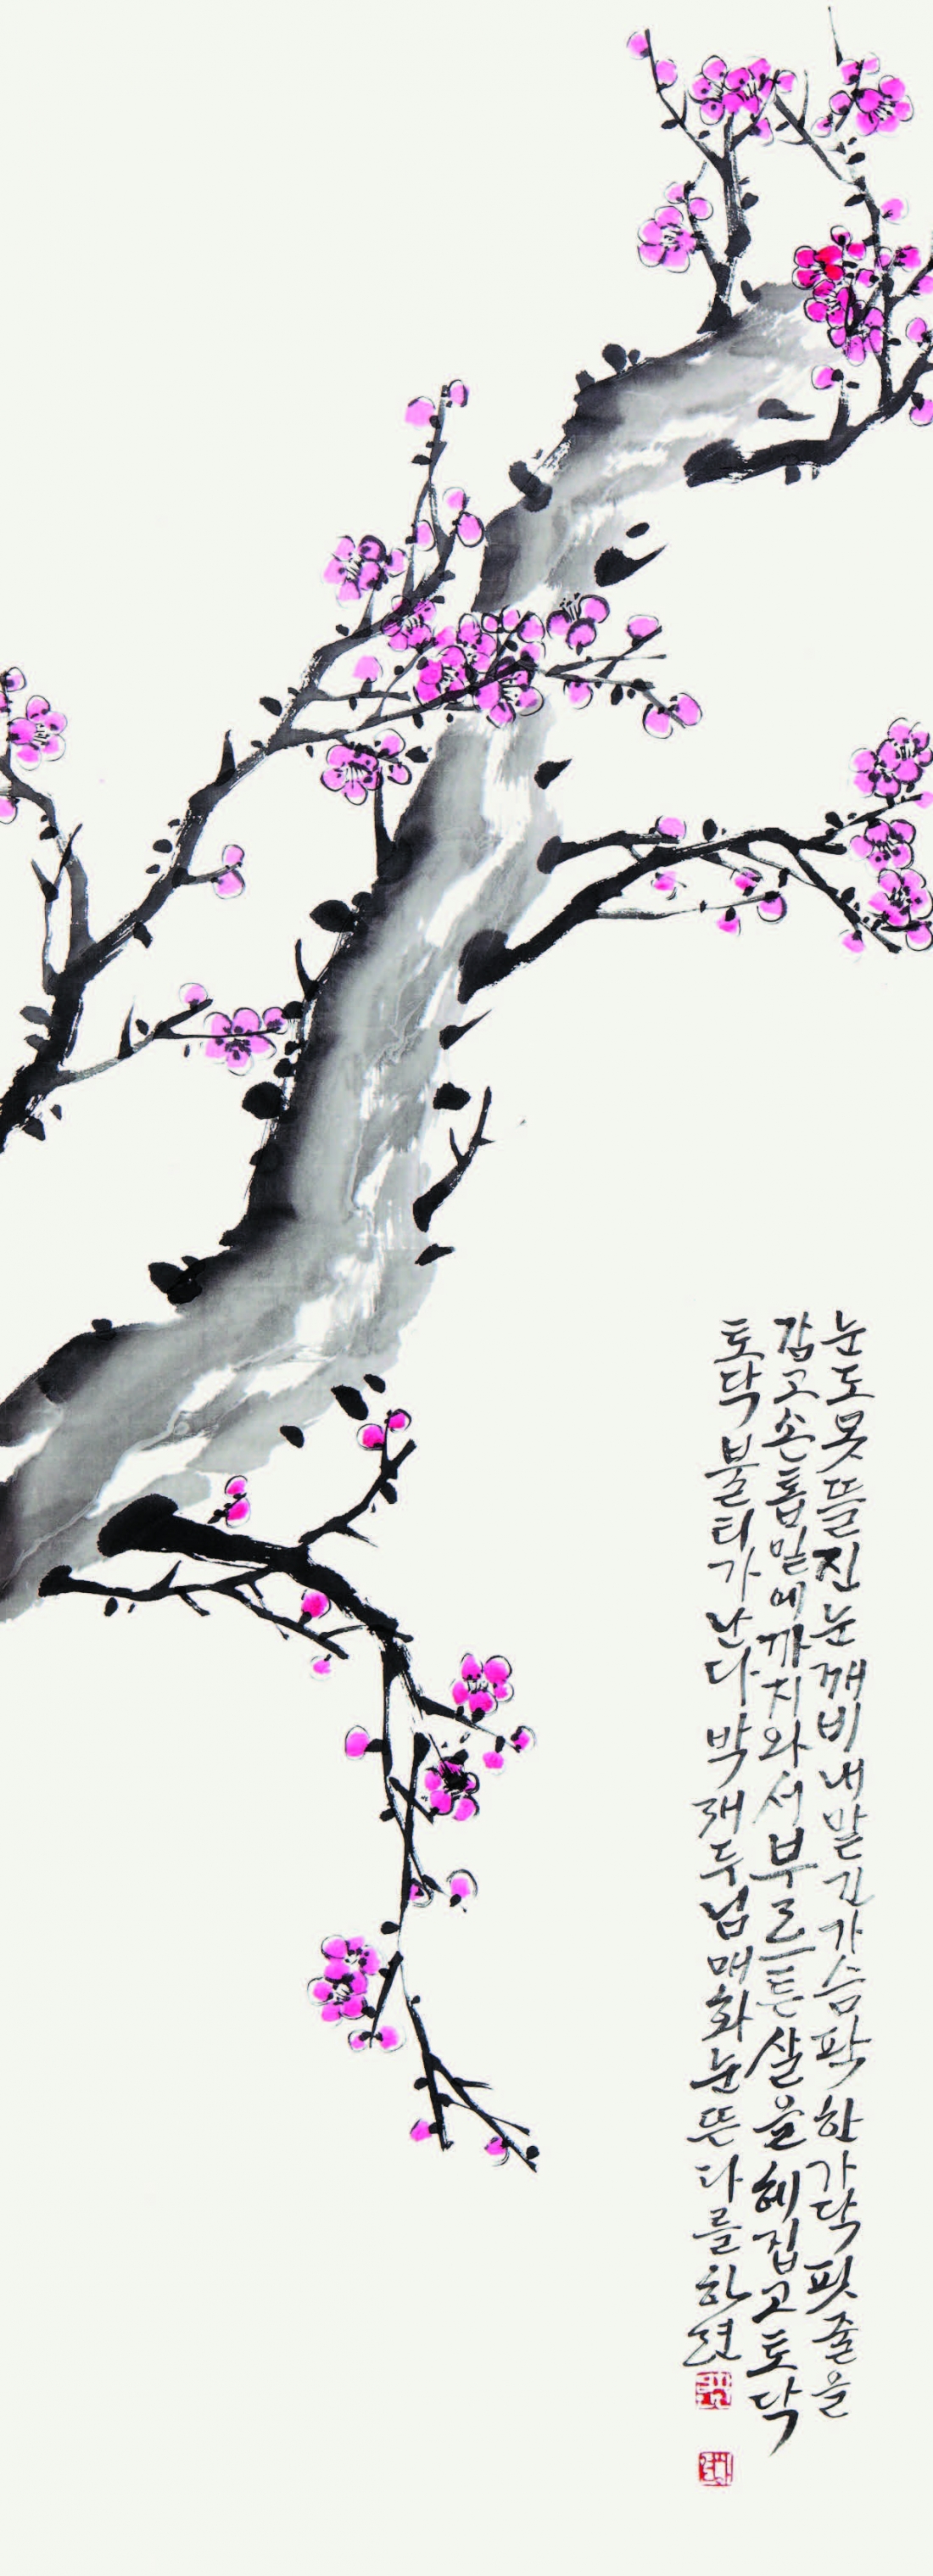 눈도 못 뜰 진눈깨비 내맡긴 가슴팍 한 가닥 핏줄을
감고 손톱 밑에 까치와서 부르튼 살을 헤집고 토닥
토닥 불티가 난다 박재두님 매화 눈 뜬다를